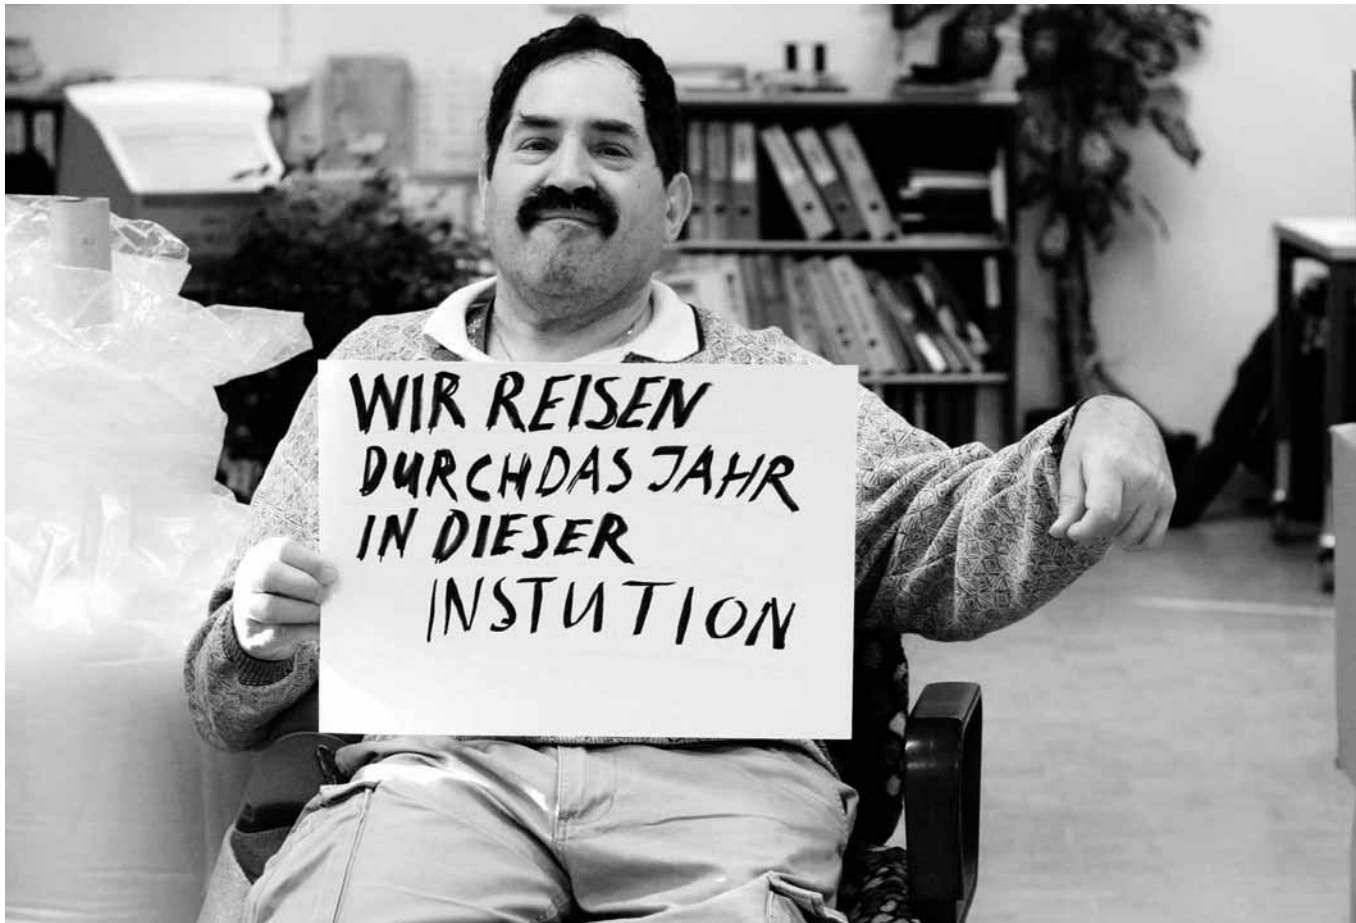 WIR REISEN
DURCHDAS JAHR
IN DIESER
INSTUTION